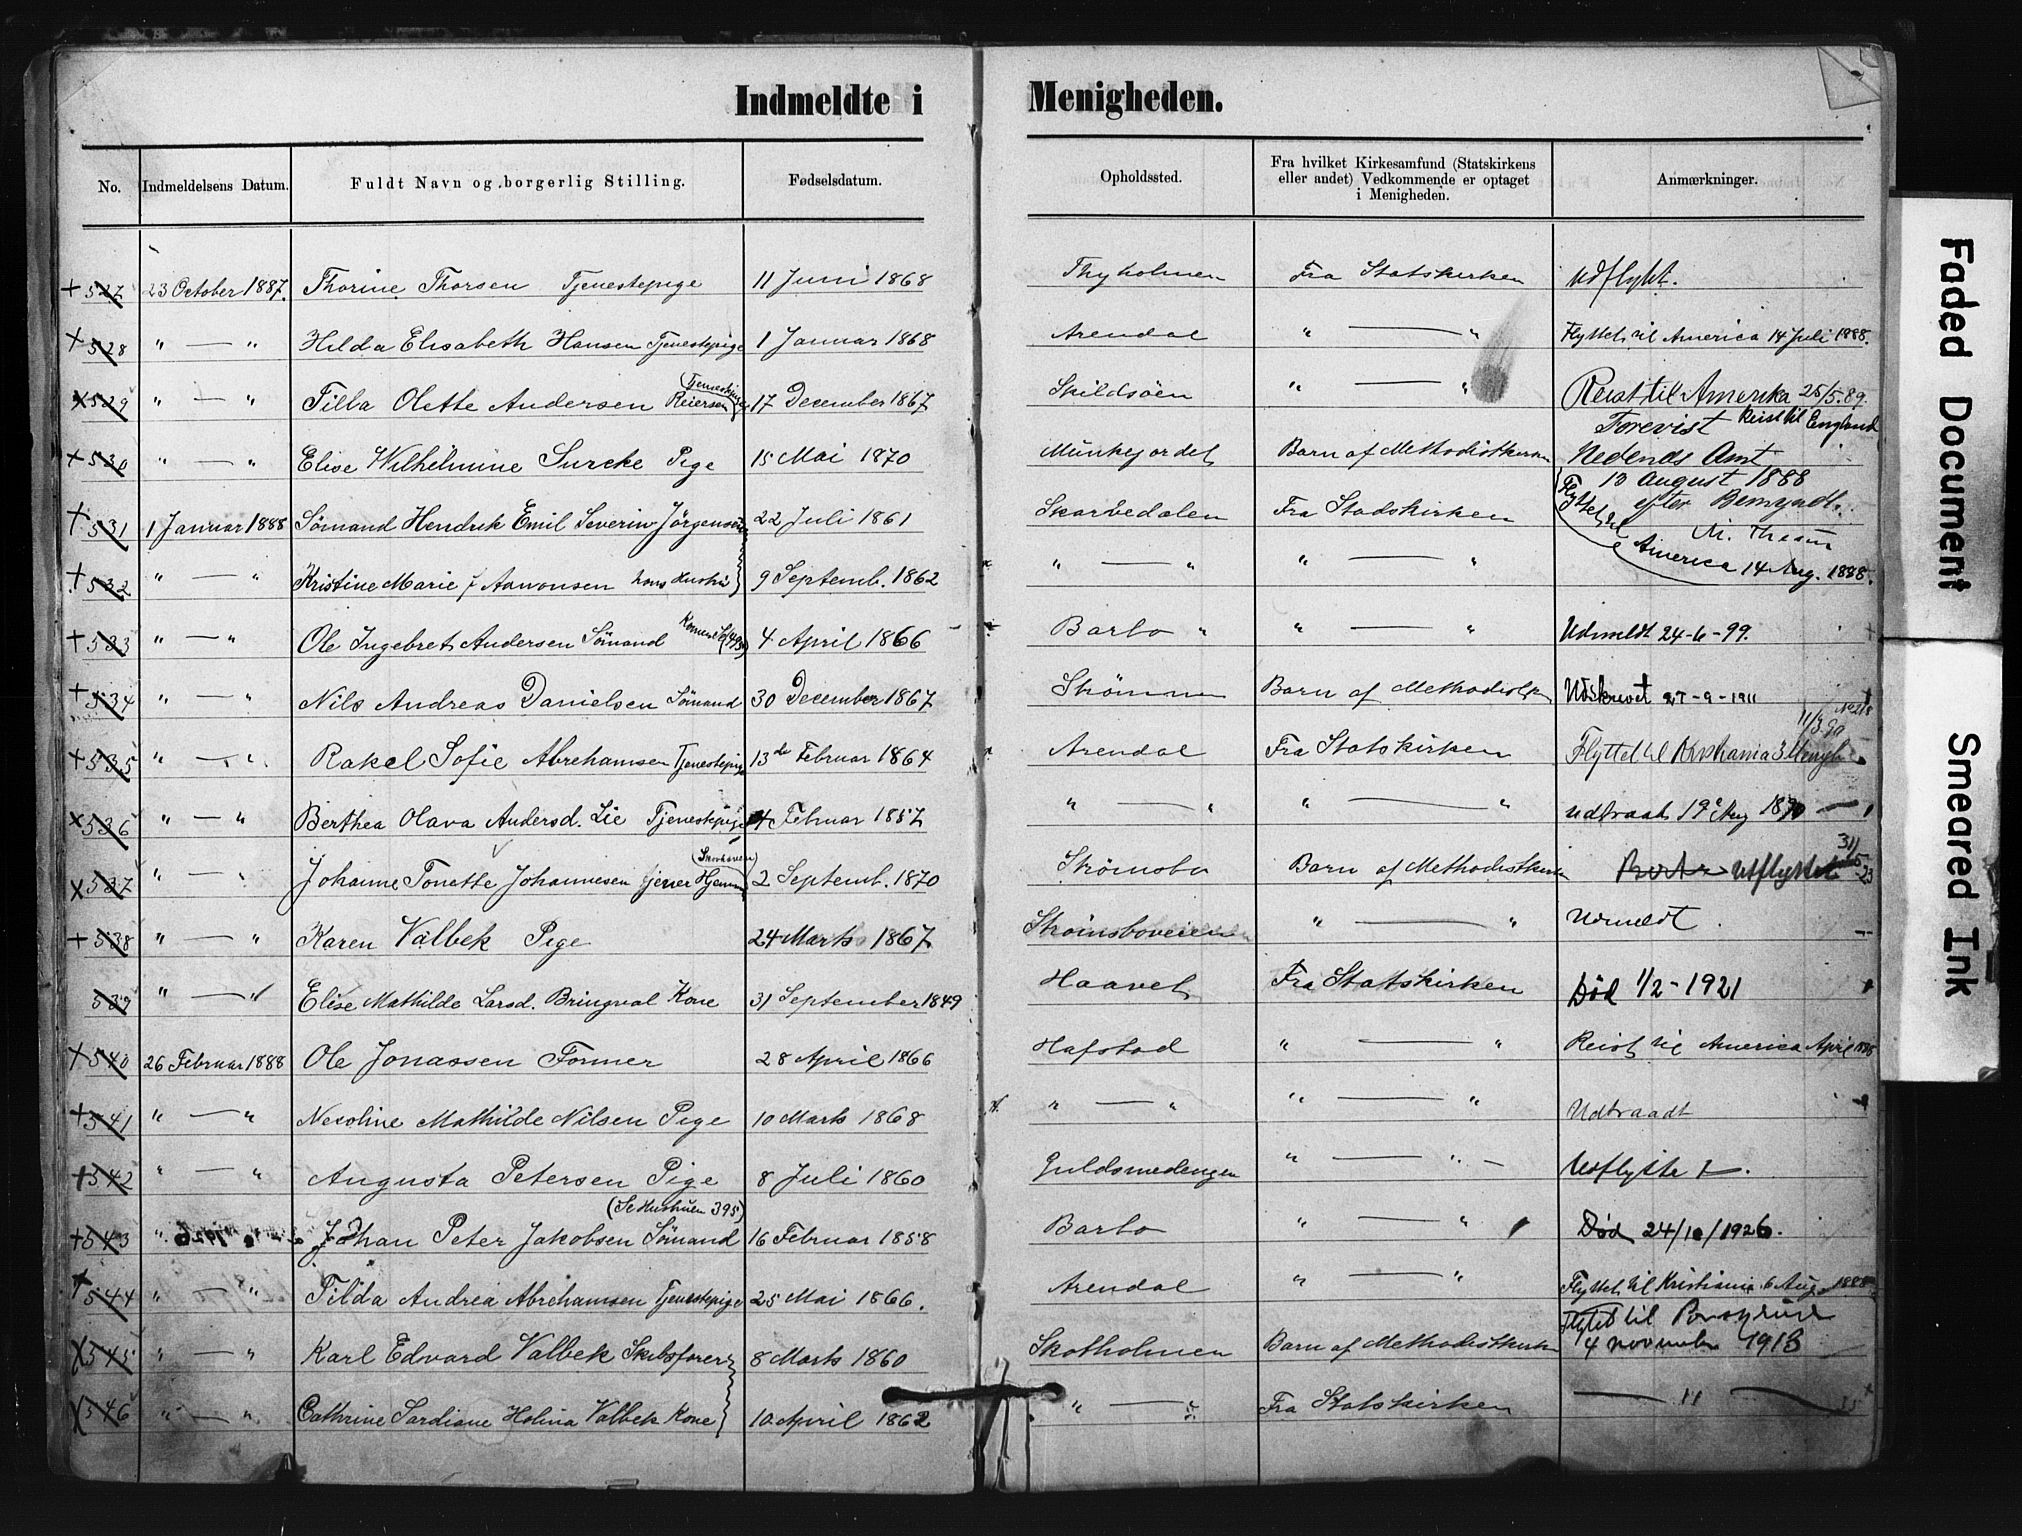 Indmeldte i Menigheden.
No. Indmeldelsens Datum. Fuldt Navn og borgerlig Stilling. Fødselsdatum. Opholdssted. Fra hvilket Kirkesamfund (Statskirkens eller andet) Vedkommende er optaget i Menigheden. Anmærkninger.
+ 527 23 October 1887. Thorine Thorsen Tjenestepige 11 Juni 1868 Thyholmen Fra Statskirken Udflykt.
+ 528 " — " Hilda Elisabeth Hansen Tjenestepige 1 Januar 1868 Arendal " — " Flyttet til America 14 Juli 1888.
x 529 " — " Tilla Olette Andersen Reiersen (Tjenestepige) 17 December 1867 Skildsöen " — " Reist til Amerika 25/5.89.
Forevist Reist til England
+ 530 " — " Elise Wilhelmine Surcke Pige 15 Mai 1870 Munkejordet Barn af Methodistkirken Nedenes Amt
13 August 1888
+ 531 1 Januar 1888 Sömand Hendrik Emil Severin Jörgensen 22 Juli 1861 Skarvedalen Fra Stadskirken efter Bemyndt.
+ 532 " — " Kristine Marie f Aanonsen hans Hustru 9 Septemb. 1862 " — " " — " Flyttet til America 14 Aug. 1888.
+ 533 " — " Ole Ingebret Andersen Sömand 4 April 1866 Barbo " " — " Udmeldt 24-6-99.
+ 534 " — " Nils Andreas Danielsen Sömand 30 December 1867 Strømmen Barn af Methodistk Udskrevet 27-9-1911
No 218
11/3 90
+ 535 " — " Rakel Sofie Abrehamsen Tjenestepige 13de Februar 1864 Arendal Fra Statskirken Flyttet til Kristiania 3 Menigh
x 536 " — " Berthea Olava Andersd. Lie Tjenestepige 4 Februar 1857 " — " " — " udtraadt 19 Maj 1890
x 537 " — " Johanne Tonette Johannesen tjener Hjemme 2 Septemb. 1870 Strömsbo Barn af Methodistkirken Utflyttet 31/5-23
+ 538 " — " Karen Valbek Pige 24 Marts 1867 Strömsboveien " — " Udmeldt.
539 " — " Elise Mathilde Larsd. Bringval Kone 31 September 1849 Haavet Fra Statskirken Död 1/2-1921
+ 540 26 Februar 1888 Ole Jonassen Former 28 April 1866 Hafstad " — " Reist til America April 1888
+ 541 " — " Nesoline Mathilde Nilsen Pige 10 Marts 1868 " — " " — " Udtraadt
+ 542 " — " Augusta Petersen Pige 8 Juli 1860 Guldsmedengen " — " Udflytte
(Se Hustruen 395)
+ 543 " 1926 Johan Peter Jakobsen Sömand 16 Februar 1858 Barbo " — " Död 24/10/1926.
x 544 " — " Tilda Andrea Abrehamsen Tjenestepige 25 Mai 1866. Arendal " — " Flyttet til Kristiania 6 Aug. 1888
Flyttet til Porsgrund
x 545 " — " Karl Edvard Valbek Skibsfører 8 Marts 1860 Skotholmen Barn af Methodistkirken 4 november 1913
x 546 " — " Cathrine Sardiane Holina Valbek Kone 10 April 1862 " — " Fra Statskirken — " —
Faded Document
Smeared Ink